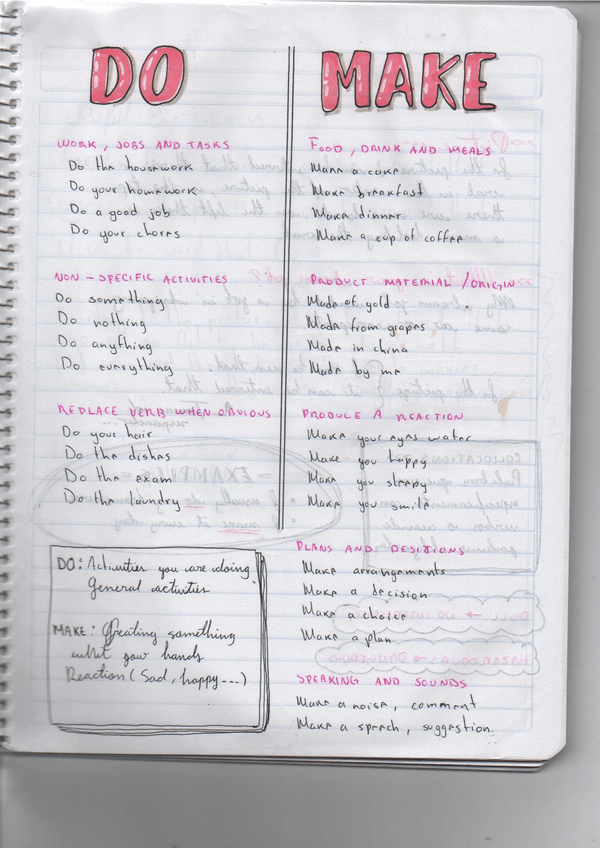 DO
WORK, JOBS AND TASKS
Do the housework
Do your homework
Do a good job
Do your chores
NON-SPECIFIC ACTIVITIES
Do something
Do nothing
Do anything
Do everything
REPLACE VERB WHEN OBVIOUS
Do your hair
Do the dishes
Do the exam
Do the laundry
DO: Activities you are doing
General activities
MAKE: Creating something
whit your hands
Reaction (Sad, happy---)
MAKE
FOOD, DRINK AND MEALS
Make a cake
Make breakfast
Make dinner
Make a cup of coffee
PRODUCT MATERIAL / ORIGIN
Made of gold
Made from grapes
Made in china
Made by me
PRODUCE A REACTION
Make your eyes water
Make you happy
Make you sleepy
Make you smile
PLANS AND DESITIONS
Make arrangements
Make a decision
Make a choice
Make a plan
SPEAKING AND SOUNDS
Make a noise, comment
Make a speech, suggestion.